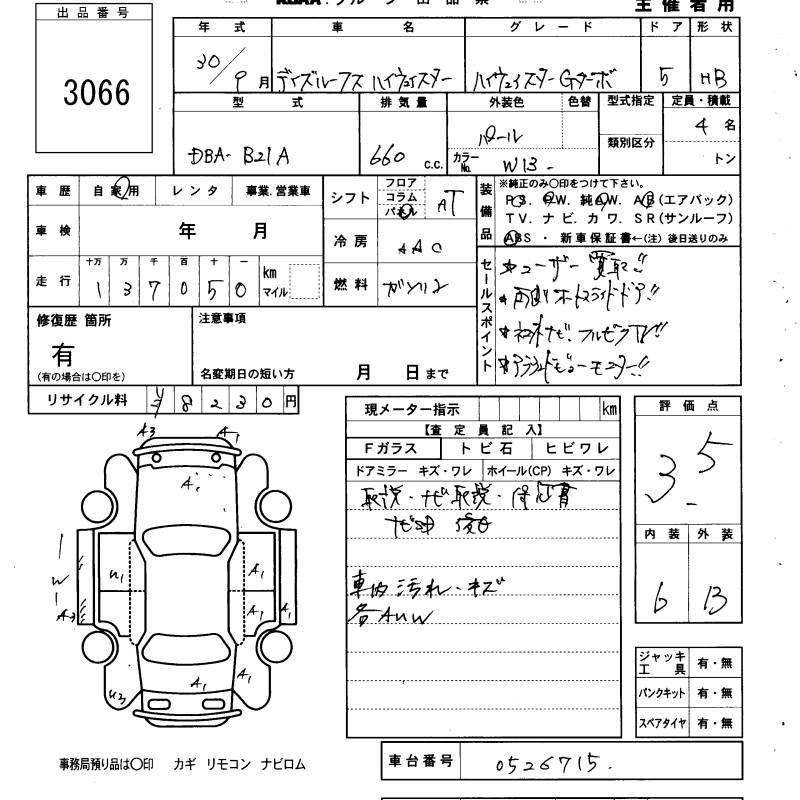 出品番号
3066
主催者用
年式 車名 グレード ドア 形状
30/9月 デイズルークス ハイウェイスター ハイウェイスターGターボ 5 HB
型式 排気量 外装色 色替 型式指定 定員・積載
DBA- B21A 660 c.c. パール 4名
カラーNo. W13 類別区分 トン
車歴 自家用 レンタ 事業.営業車
シフト フロア コラム パネル AT
装備品 ※純正のみ○印をつけて下さい。
PS. PW. 純AW. AB(エアバック)
TV. ナビ. カワ. SR(サンルーフ)
ABS ・ 新車保証書←(注) 後日送りのみ
車検 年 月
冷房 AAC
走行 十万 万 千 百 十 一
137050 km マイル
燃料 ガソリン
セールスポイント
★ユーザー買取!!
★両側オートスライドドア!!
★コネクトナビ!フルセグTV!!
★アラウンドビューモニター!!
修復歴 箇所
有
(有の場合は○印を)
注意事項
名変期日の短い方 月 日まで
リサイクル料 ¥8230円
現メーター指示 km
【査定員記入】
Fガラス トビ石 ヒビワレ
ドアミラー キズ・ワレ ホイール(CP) キズ・ワレ
取説・ナビ取説・保証書
車内汚れ・キズ
各AUW
評価点
3.5
内装 外装
6 B
ジャッキ工具 有・無
パンクキット 有・無
スペアタイヤ 有・無
A3 A1
A1
W
U1 A1
A3 A1 A1
U2 A1 A1
事務局預り品は○印 カギ リモコン ナビロム
車台番号 0526715.